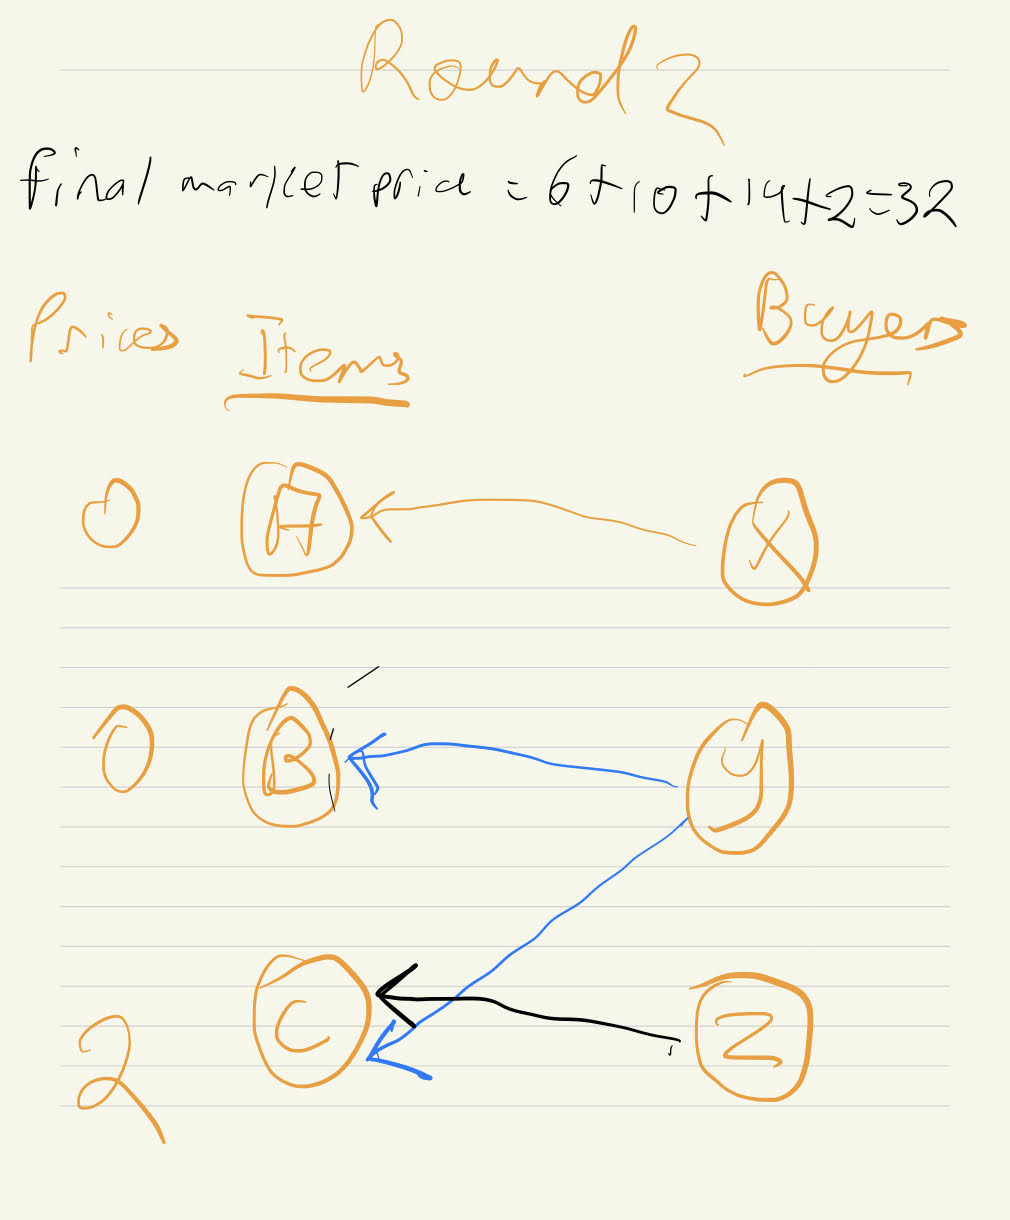 Round 2
final market price = 6+10+14+2=32
Prices Items Buyers
0 A X
0 B y
2 C Z